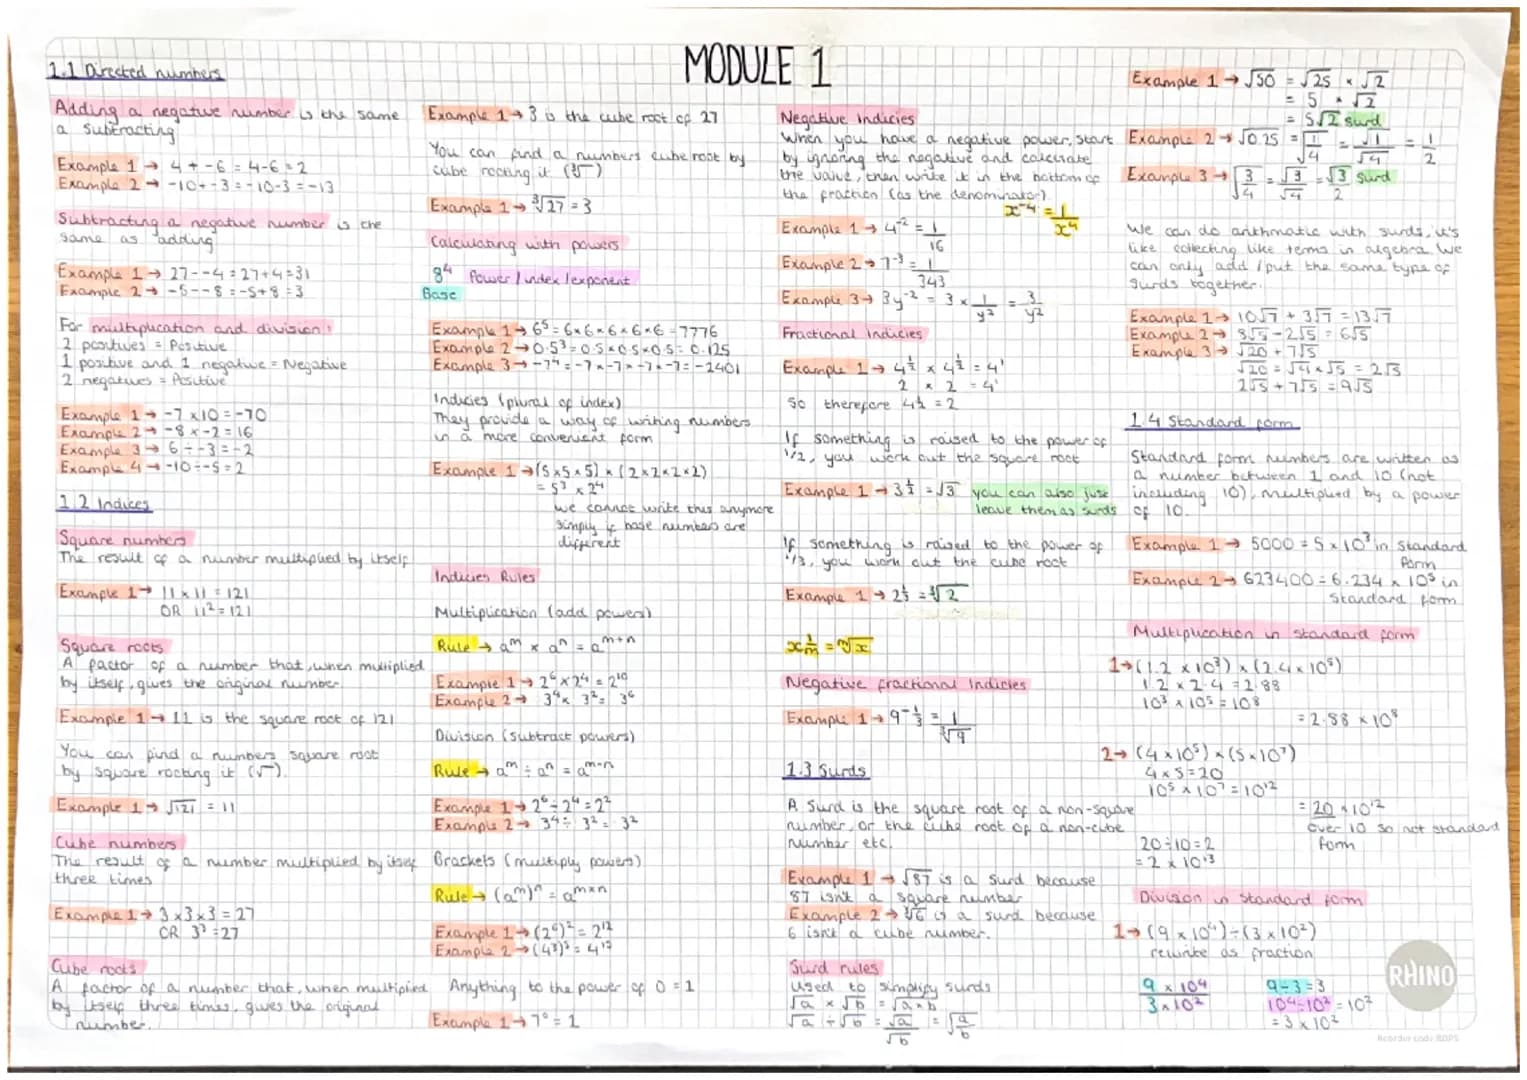 MODULE 1
1.1 Directed numbers
Adding a negative number is the same
a subtracting
Example 1 → 4 + -6 = 4-6 = 2
Example 2 → -10+-3 = -10-3 = -13
Subtracting a negative number is the
same as adding
Example 1 → 27--4 = 27+4 = 31
Example 2 → -5--8 = -5+8 = 3
For multiplication and division:
2 positives = Positive
1 positive and 1 negative = Negative
2 negatives = Positive
Example 1 → -7 x10 = -70
Example 2 → -8 x -2 = 16
Example 3 → 6 ÷ -3 = -2
Example 4 → -10÷-5 = 2
1.2 Indices
Square numbers
The result of a number multiplied by itself
Example 1 → 11 x 11 = 121
OR 11² = 121
Square roots
A factor of a number that, when multiplied
by itself, gives the original number.
Example 1 → 11 is the square root of 121
You can find a numbers square root
by square rooting it (√).
Example 1 → √121 = 11
Cube numbers
The result of a number multiplied by itself
three times
Example 1 → 3 x3 x 3 = 27
OR 3³ = 27
Cube roots
A factor of a number that, when multiplied
by itself three times, gives the original
number.
Example 1 → 3 is the cube root of 27
You can find a numbers cube root by
cube rooting it (∛)
Example 1 → ∛27 = 3
Calculating with powers
8⁴ Power / index / exponent
Base
Example 1 → 6⁵ = 6×6×6×6×6 = 7776
Example 2 → 0.5³ = 0.5 x 0.5 x 0.5 = 0.125
Example 3 → -7⁴ = -7 x -7 x -7 x -7 = -2401
Indicies (plural of index)
They provide a way of writing numbers
in a more convenient form
Example 1 → (5 x5 x5) x (2x2x2x2)
= 5³ x 2⁴
we cannot write this anymore
simply if base numbers are
different
Indicies Rules
Multiplication (add powers)
Rule → aᵐ x aⁿ = aᵐ⁺ⁿ
Example 1 → 2⁶ x 2⁴ = 2¹⁰
Example 2 → 3⁴ x 3² = 3⁶
Division (subtract powers)
Rule → aᵐ ÷ aⁿ = aᵐ⁻ⁿ
Example 1 → 2⁶ ÷ 2⁴ = 2²
Example 2 → 3⁴ ÷ 3² = 3²
Brackets (multiply powers)
Rule → (aᵐ)ⁿ = aᵐˣⁿ
Example 1 → (2⁶)² = 2¹²
Example 2 → (4³)⁵ = 4¹⁵
Anything to the power of 0 = 1
Example 1 → 7⁰ = 1
Negative Indicies
When you have a negative power, start
by ignoring the negative and calculate
the value, then write it in the bottom of
the fraction (as the denominator)
x⁻⁴ = 1/x⁴
Example 1 → 4⁻² = 1/16
Example 2 → 7⁻³ = 1/343
Example 3 → 3y⁻² = 3 x 1/y² = 3/y²
Fractional Indicies
Example 1 → 4^½ x 4^½ = 4¹
2 x 2 = 4¹
So therefore 4^½ = 2
If something is raised to the power of
1/2, you work out the square root
Example 1 → 3^½ = √3 you can also just
leave them as surds
If something is raised to the power of
1/3, you work out the cube root
Example 1 → 2^⅓ = ∛2
x^(1/m) = ᵐ√x
Negative fractional Indicies
Example 1 → 9^-⅓ = 1/∛9
1.3 Surds
A Surd is the square root of a non-square
number, or the cube root of a non-cube
number etc.
Example 1 → √87 is a surd because
87 isn't a square number
Example 2 → ∛6 is a surd because
6 isn't a cube number.
Surd rules
Used to simplify surds
√a x √b = √a×b
√a ÷ √b = √a/√b = √(a/b)
Example 1 → √50 = √25 x √2
= 5 x √2
= 5√2 surd
Example 2 → √0.25 = √(1/4) = √1/√4 = 1/2
Example 3 → √(3/4) = √3/√4 = √3/2 surd
We can do arithmatic with surds, it's
like collecting like terms in algebra. We
can only add /put the same type of
surds together.
Example 1 → 10√7 + 3√7 = 13√7
Example 2 → 8√5 - 2√5 = 6√5
Example 3 → √20 + 7√5
√20 = √4 x √5 = 2√5
2√5 + 7√5 = 9√5
1.4 Standard form
Standard form numbers are written as
a number between 1 and 10 (not
including 10), multiplied by a power
of 10.
Example 1 → 5000 = 5 x 10³ in Standard
form
Example 2 → 623400 = 6.234 x 10⁵ in
Standard form
Multiplication in standard form
1→ (1.2 x 10³) x (2.4 x 10⁵)
1.2 x 2.4 = 2.88
10³ x 10⁵ = 10⁸
= 2.88 x 10⁸
2→ (4 x 10⁵) x (5 x 10⁷)
4 x 5 = 20
10⁵ x 10⁷ = 10¹²
= 20 x 10¹²
over 10 so not standard
form
20 ÷ 10 = 2
= 2 x 10¹³
Division in standard form
1→ (9 x 10⁴) ÷ (3 x 10²)
rewrite as fraction
9 x 10⁴ 9÷3 = 3
3 x 10² 10⁴÷10² = 10²
= 3 x 10²
RHINO